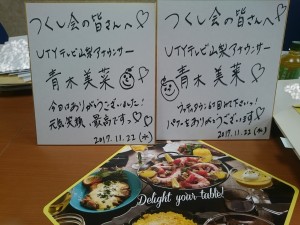 つくし会の皆さんへ♡
UTYテレビ山梨アナウンサー
青木美菜
今日はありがとうございました!
元気、笑顔、最高ですっ♡
2017.11.22(水)
つくし会の皆さんへ♡
UTYテレビ山梨アナウンサー
青木美菜
ありがとうございます
2017.11.22(水)
Delight your table!